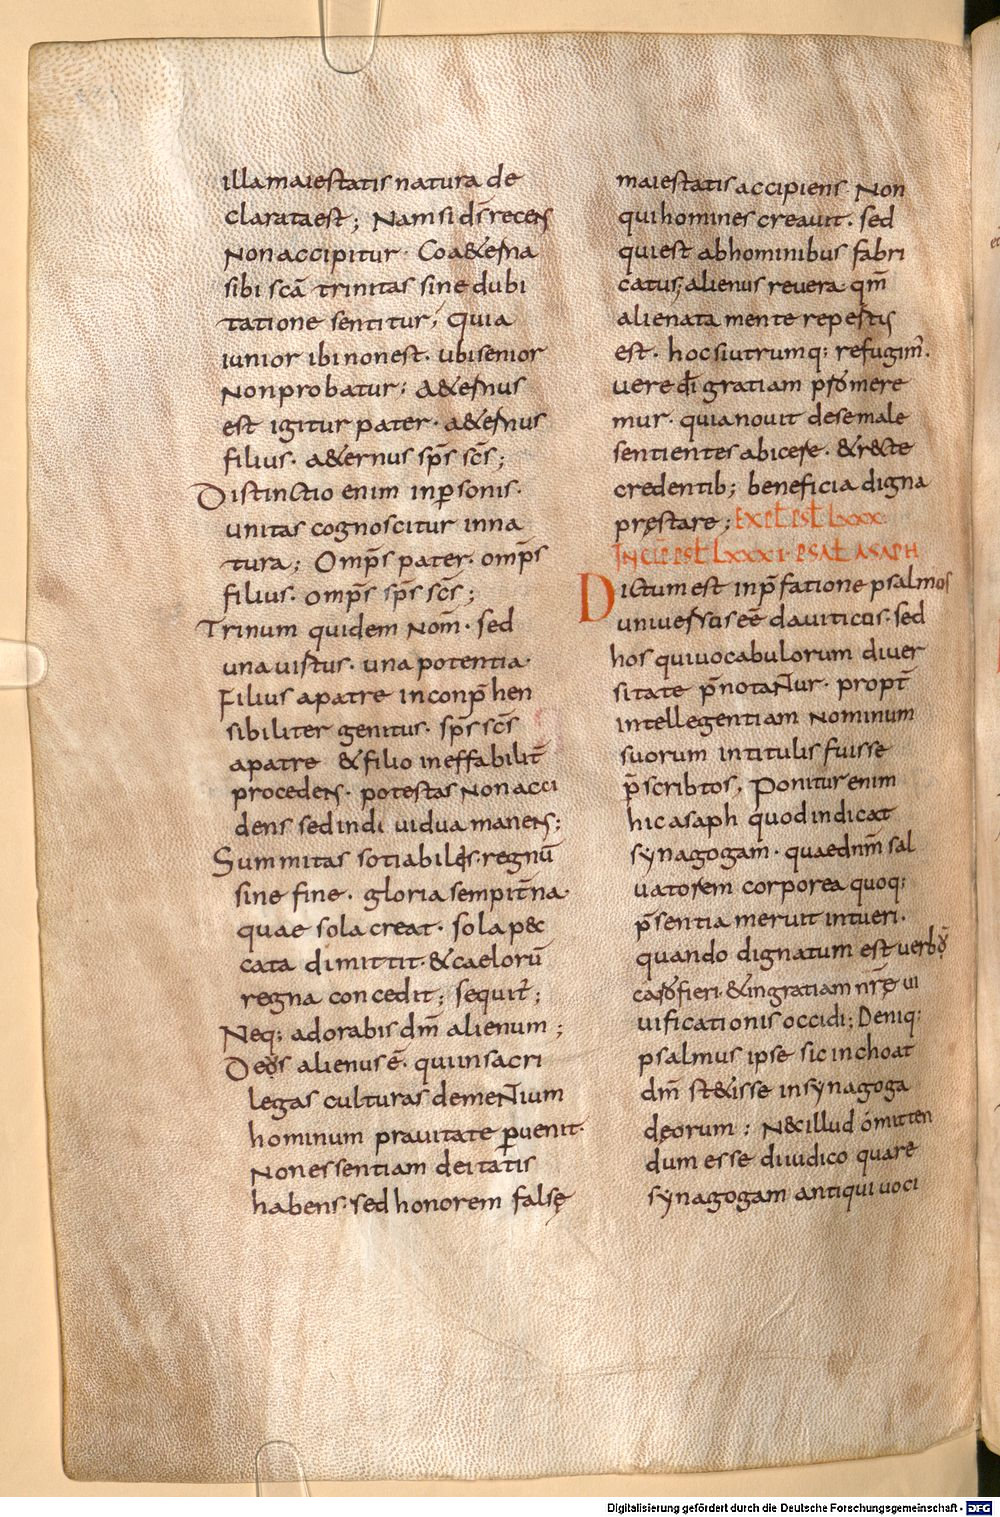 illa maiestatis natura de
clarata est; Nam si d̄s recens
Non accipitur· Coa&erna
sibi scā trinitas sine dubi
tatione sentitur; quia
iunior ibi non est· ubi senior
Non probatur; A&ernus
est igitur pater· a&ernus
filius· a&ernus sp̄s sc̄s;
Distinctio enim in ꝑsonis·
unitas cognoscitur in na
tura; Omp̄s pater· omp̄s
filius· omp̄s sp̄s sc̄s;
Trinum quidem Nom̄· sed
una uirtus· una potentia·
Filius a patre inconp̄hen
sibiliter genitus· sp̄s sc̄s
a patre & filio ineffabilit̄
procedens· potestas Non acci
dens sed indiuidua manens;
Summitas sotiabilis· regnū
sine fine· gloria sempit̄na·
quae sola creat· sola pec
cata dimittit· & caelorū
regna concedit; sequit̄;
Neq; adorabis dm̄ alienum;
Deus alienus ē· qui in sacri
legas culturas dementium
hominum prauitate ꝑuenit·
Non essentiam deitatis
habens· sed honorem falsę
maiestatis accipiens Non
qui homines creauit· sed
qui est ab hominibus fabri
catus; alienus reuera qm̄
alienata mente repertus
est· hoc si utrumq; refugim̄·
uere dī gratiam promere
mur· quia nouit de se male
sentientes abicere· & recte
credentib; beneficia digna
pręstare; EXPŁ PSŁ LXXX·
INCIP̄ PSŁ LXXXI· PSAŁ ASAPH
Dictum est in p̄fatione psalmos
uniuersus eē dauiticus· sed
hos qui uocabulorum diuer
sitate p̄notantur· propt̄
intellegentiam Nominum
suorum in titulis fuisse
p̄scribtos, Ponitur enim
hic asaph quod indicat
synagogam· quae dnm̄ sal
uatorem corporea quoq;
p̄sentia meruit intueri·
quando dignatum est uerbū
caro fieri· & in gratiam nr̄ę ui
uificationis occidi; Deniq:
psalmus ipse sic inchoat
dm̄ st&isse in synagoga
deorum; N& illud omitten
dum esse diiudico quare
synagogam antiqui uoci
Digitalisierung gefördert durch die Deutsche Forschungsgemeinschaft - DFG